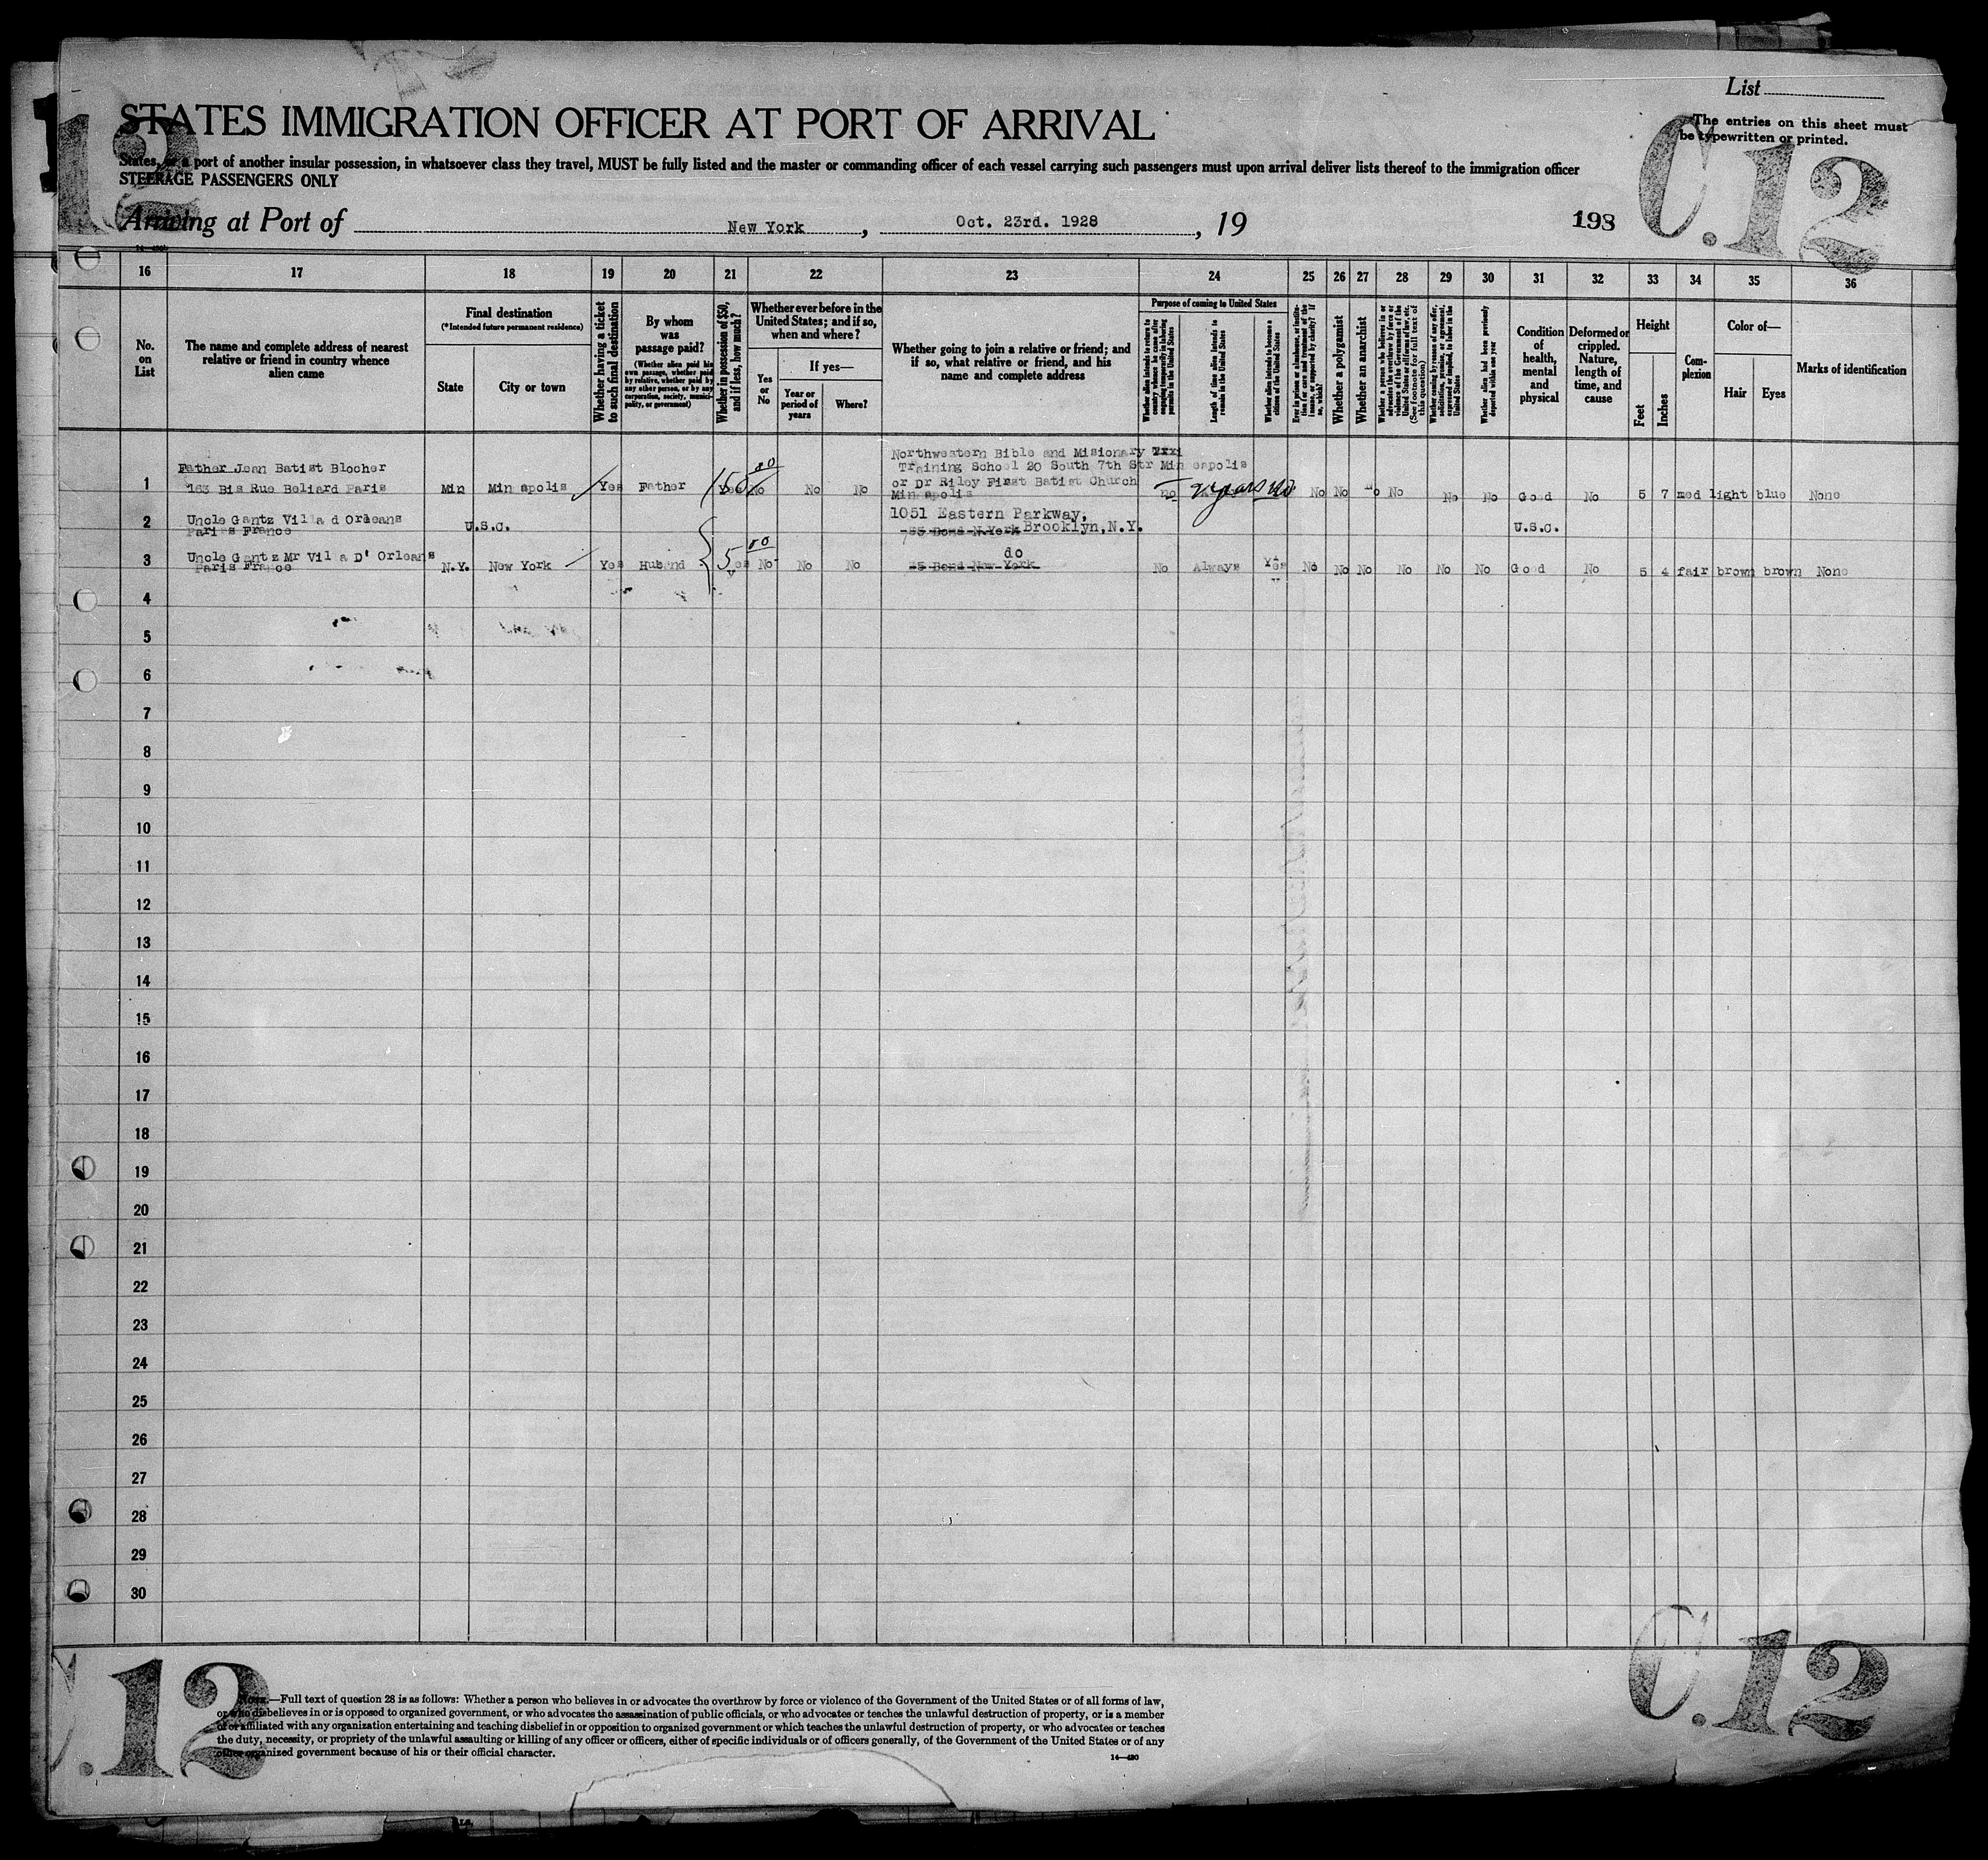 List
STATES IMMIGRATION OFFICER AT PORT OF ARRIVAL
The entries on this sheet must
be typewritten or printed.
States, or a port of another insular possession, in whatsoever class they travel, MUST be fully listed and the master or commanding officer of each vessel carrying such passengers must upon arrival deliver lists thereof to the immigration officer
STEERAGE PASSENGERS ONLY
12
C.12
Arriving at Port of New York, Oct. 23rd. 1928, 19
198
16 17 18 19 20 21 22 23 24 25 26 27 28 29 30 31 32 33 34 35 36
No. on List
The name and complete address of nearest
relative or friend in country whence
alien came
Final destination
(*Intended future permanent residence)
State
City or town
Whether having a ticket
to such final destination
By whom
was
passage paid?
(Whether alien paid his
own passage, whether paid
by relative, whether paid by
any other person, or by any
corporation, society, munici-
pality, or government)
Whether in possession of $50,
and if less, how much?
Whether ever before in the
United States; and if so,
when and where?
Yes
or
No
If yes—
Year or
period of
years
Where?
Whether going to join a relative or friend; and
if so, what relative or friend, and his
name and complete address
Purpose of coming to United States
Whether alien intends to return to
country whence he came after
engaging temporarily in laboring
pursuits in the United States
Length of time alien intends to
remain in the United States
Whether alien intends to become a
citizen of the United States
Ever in prison or almshouse, or institu-
tion for care and treatment of the
insane, or supported by charity? If
so, which?
Whether a polygamist
Whether an anarchist
Whether a person who believes in or
advocates the overthrow by force or
violence of the Government of the
United States or all forms of law, etc.
(See footnote for full text of
this question)
Whether coming by reason of any offer,
solicitation, promise, or agreement,
expressed or implied, to labor in the
United States
Whether alien had been previously
deported within one year
Condition
of
health,
mental
and
physical
Deformed or
crippled.
Nature,
length of
time, and
cause
Height
Feet
Inches
Com-
plexion
Color of—
Hair
Eyes
Marks of identification
Northwestern Bible and Misionary
Father Jean Batist Blocher
Training School 20 South 7th Str Min eapolis
1 163 Bis Rue Beliard Paris Min Min apolis Yes Father 150 00 No No No or Dr Riley First Batist Church
Min apolis
no 2 years no No No No No No No Good No 5 7 med light blue None
1051 Eastern Parkway,
2 Uncle Gantz Villa d Orleans
Paries France
U.S.C. 35 Bond N.York Brooklyn, N.Y. U.S.C.
3 Uncle Gantz Mr Vil a D' Orleans
Paris France
N.Y. New York Yes Husbnd 5 00 No No No do
35 Bond New York
No Always Yes No No No No No No Good No 5 4 fair brown brown None
4
5
6
7
8
9
10
11
12
13
14
15
16
17
18
19
20
21
22
23
24
25
26
27
28
29
30
C.12
C.12
Note.—Full text of question 28 is as follows: Whether a person who believes in or advocates the overthrow by force or violence of the Government of the United States or of all forms of law,
or who disbelieves in or is opposed to organized government, or who advocates the assassination of public officials, or who advocates or teaches the unlawful destruction of property, or is a member
of or affiliated with any organization entertaining and teaching disbelief in or opposition to organized government or which teaches the unlawful destruction of property, or who advocates or teaches
the duty, necessity, or propriety of the unlawful assaulting or killing of any officer or officers, either of specific individuals or of officers generally, of the Government of the United States or of any
other organized government because of his or their official character.
14—430